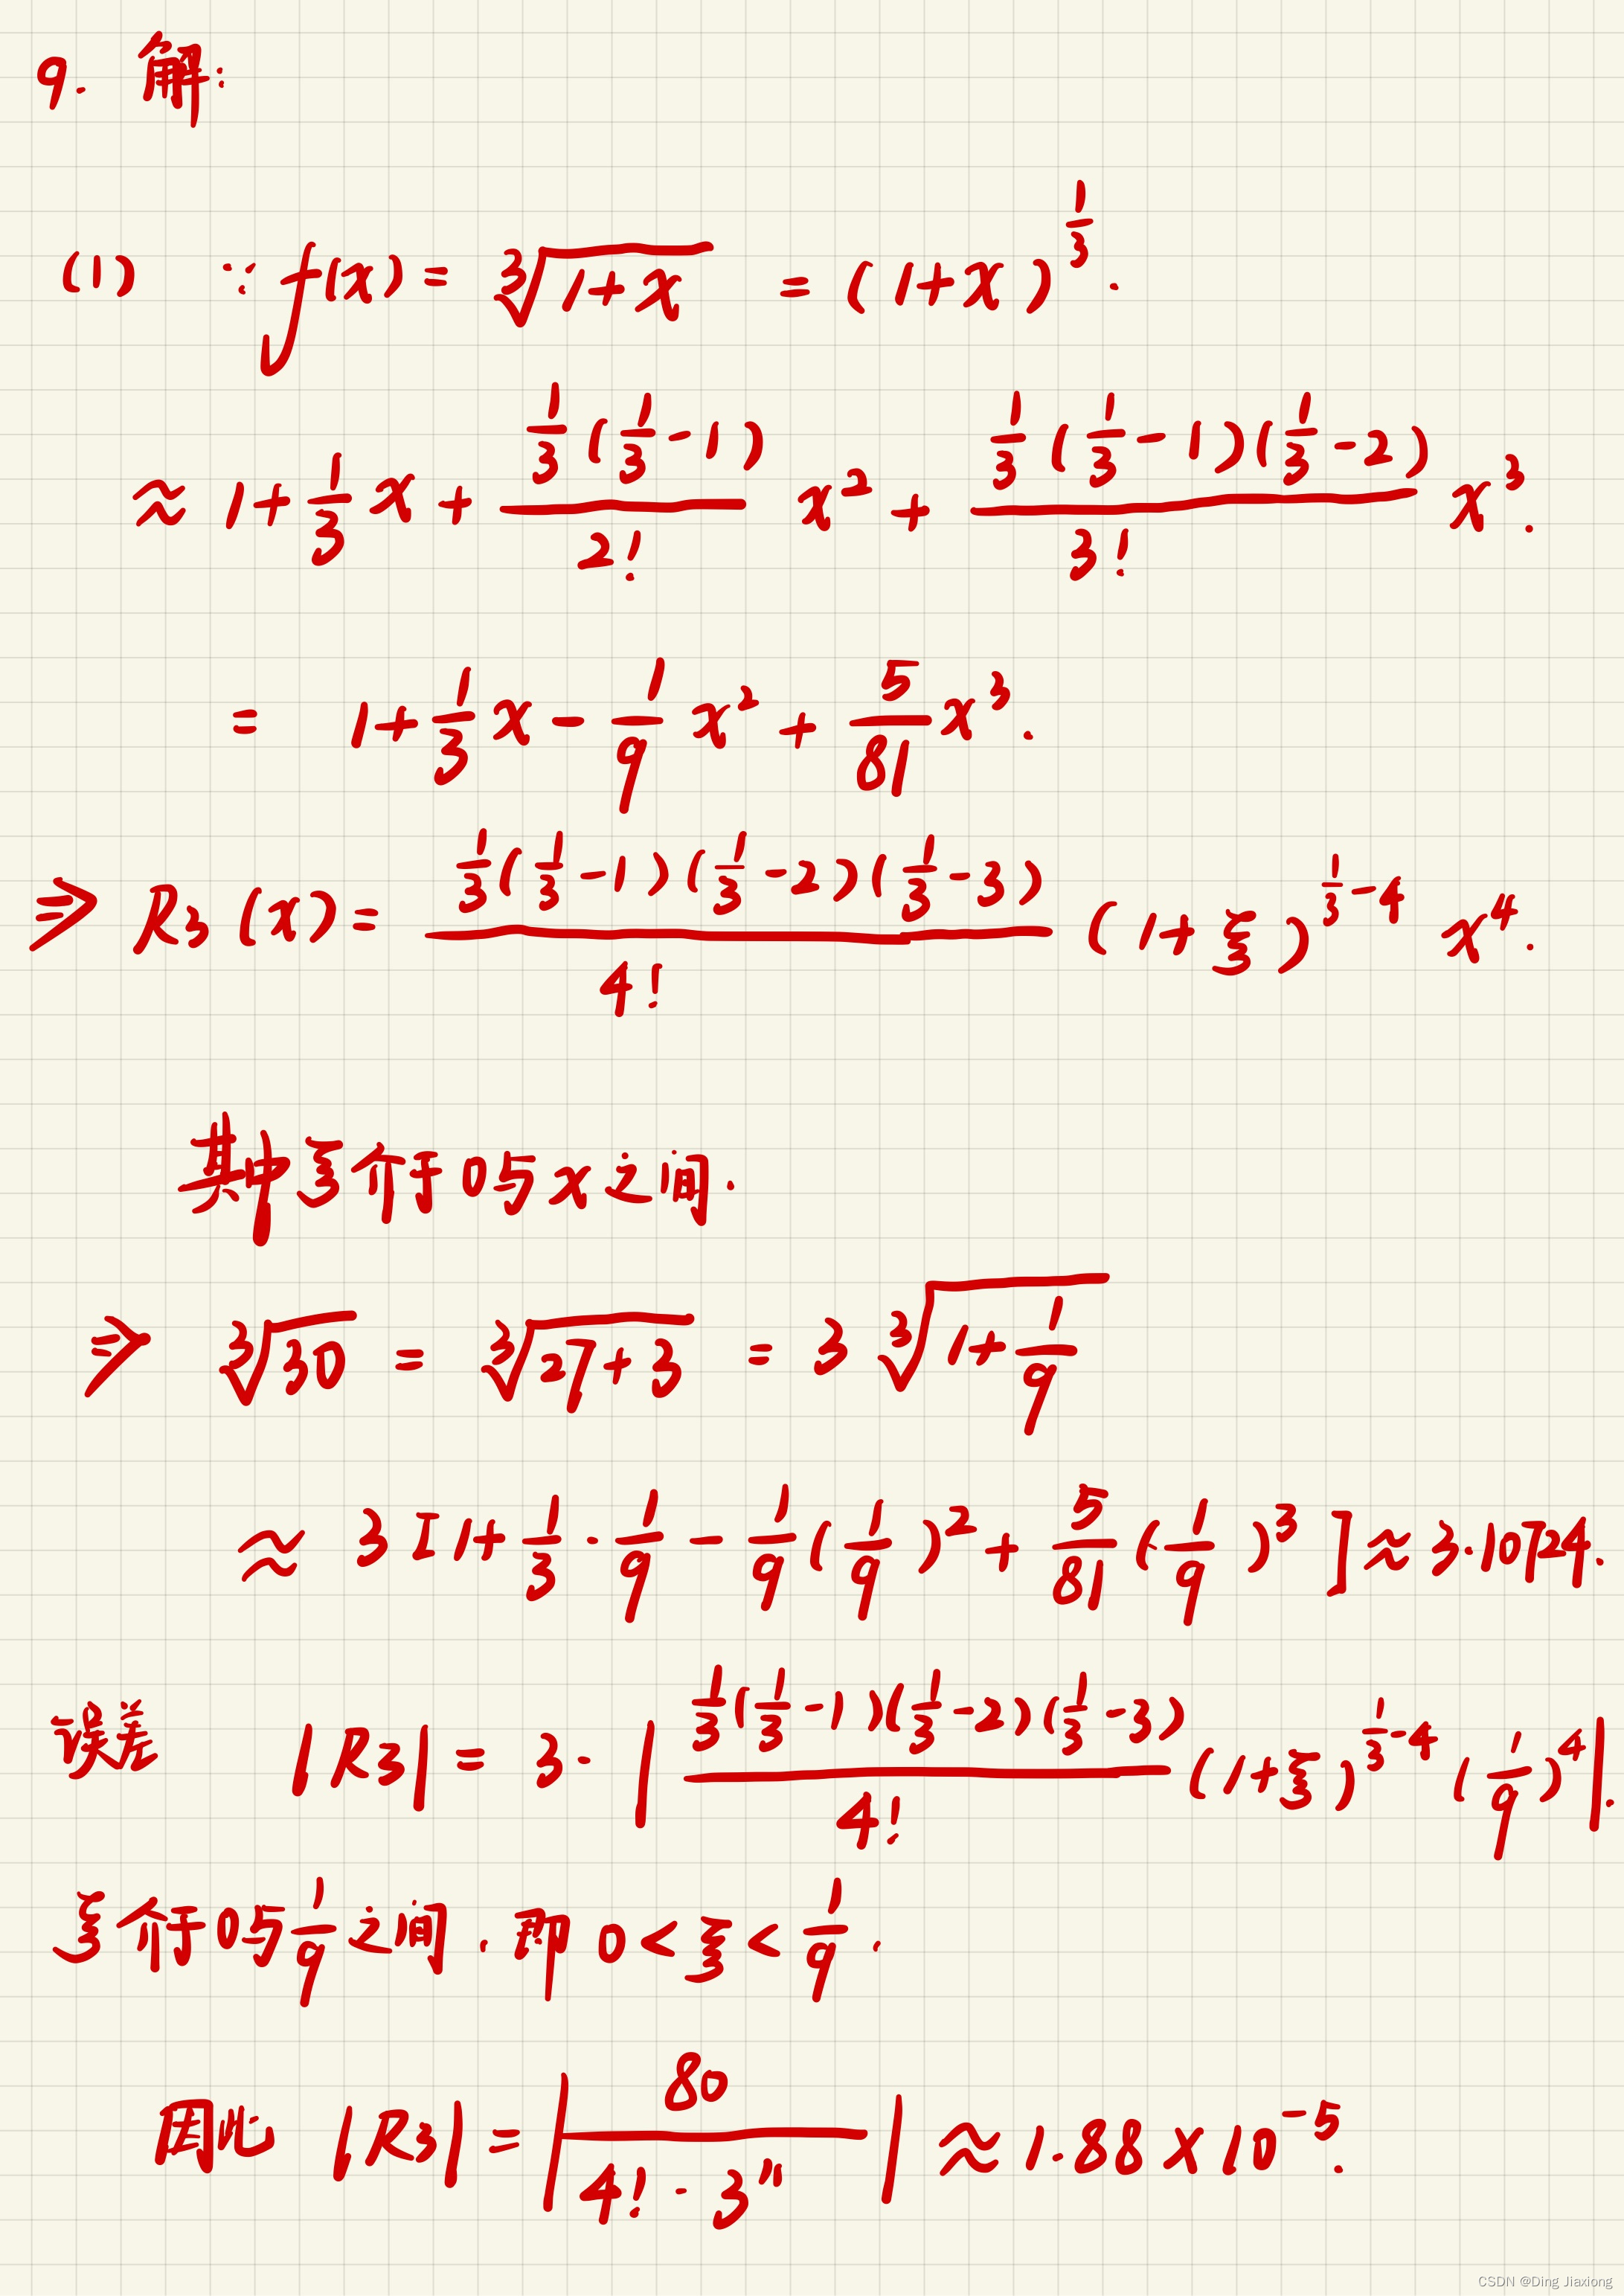 9. 解:
(1) ∵ f(x) = ∛(1+x) = (1+x)^(1/3).
≈ 1 + 1/3 x + (1/3(1/3-1))/2! x² + (1/3(1/3-1)(1/3-2))/3! x³.
= 1 + 1/3 x - 1/9 x² + 5/81 x³.
⇒ R₃(x) = (1/3(1/3-1)(1/3-2)(1/3-3))/4! (1+ξ)^(1/3-4) x⁴.
其中ξ介于0与x之间.
⇒ ∛30 = ∛(27+3) = 3∛(1+1/9)
≈ 3[1 + 1/3·1/9 - 1/9(1/9)² + 5/81(1/9)³] ≈ 3.10724.
误差 |R₃| = 3·|(1/3(1/3-1)(1/3-2)(1/3-3))/4! (1+ξ)^(1/3-4) (1/9)⁴|.
ξ介于0与1/9之间. 即 0<ξ<1/9.
因此 |R₃| = |80/(4!·3¹¹)| ≈ 1.88×10⁻⁵.
CSDN @Ding Jiaxiong